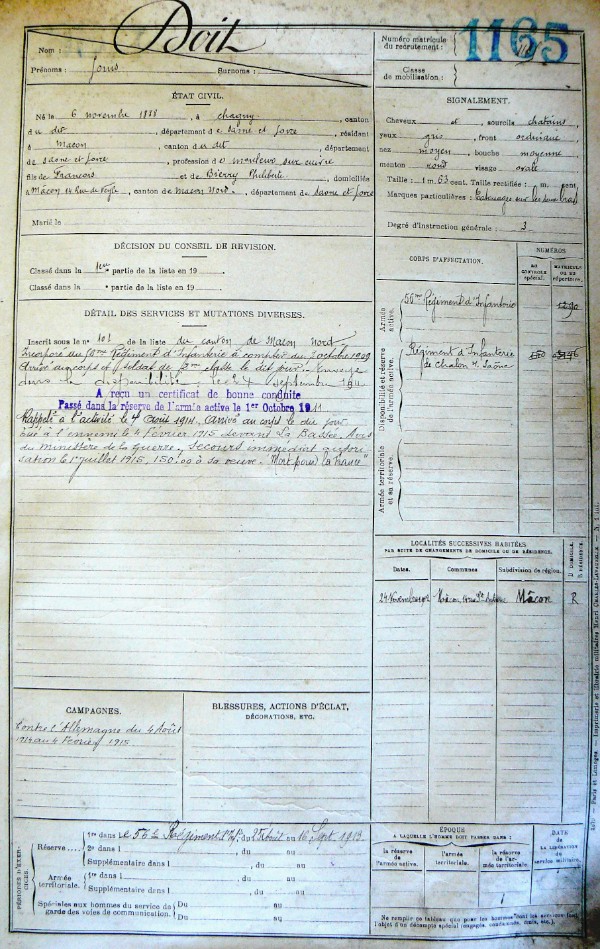 Nom : Doit
Prénoms : Surnoms :
Numéro matricule du recrutement : 1165
Classe de mobilisation :
ÉTAT CIVIL.
Né le 6 novembre 1888, à Chagny, canton
du dit, département de Saône et Loire, résidant
à Macon, canton du dit, département
de Saône et Loire, profession de sur cuivre
fils de Francois et de Bierry Philiberte, domiciliés
à Mâcon, canton de Macon Nord, département de Saone et Loire
Marié le
SIGNALEMENT.
Cheveux et sourcils chatains,
yeux gris, front ordinaire
nez moyen, bouche moyenne
menton rond visage ovale
Taille : 1 m. 63 cent. Taille rectifiée : 1 m. cent.
Marques particulières : Tatouages sur les deux bras
Degré d'instruction générale : 3
DÉCISION DU CONSEIL DE REVISION.
Classé dans la 1ere partie de la liste en 19
Classé dans la partie de la liste en 19
DÉTAIL DES SERVICES ET MUTATIONS DIVERSES.
Inscrit sous le n° 101 de la liste du canton de Macon Nord
Incorporé au Régiment d'Infanterie à compter du 7 octobre 1909
Arrivé au corps et soldat de 2me classe le dit jour.
dans la disponibilité le 24 septembre 1911
A reçu un certificat de bonne conduite
Passé dans la réserve de l'armée active le 1er Octobre 1911
Rappelé à l'activité le 4 Août 1914, arrivé au corps le dit jour
tué à l'ennemi le 4 février 1915 devant La Bassée. Avis
du ministère de la guerre. Secours immédiat autori
sation le 1er juillet 1915, 150.00 à sa veuve. "Mort pour la France"
CORPS D'AFFECTATION.
NUMÉROS
AU CONTRÔLE SPÉCIAL.
MATRICULE OU AU RÉPERTOIRE.
Armée active.
56me Régiment d'Infanterie
Disponibilité et réserve de l'armée active.
Régiment d'Infanterie
de Chalon s/ Saône
Armée territoriale et sa réserve.
LOCALITÉS SUCCESSIVES HABITÉES
PAR SUITE DE CHANGEMENTS DE DOMICILE OU DE RÉSIDENCE.
Dates. Communes Subdivision de région. D. DOMICILE. R. RÉSIDENCE.
24 Novembre Mâcon Mâcon R
CAMPAGNES.
Contre l'Allemagne du 4 Août
1914 au 4 Février 1915
BLESSURES, ACTIONS D'ÉCLAT,
DÉCORATIONS, ETC.
PÉRIODES D'EXERCICES.
Réserve
1re dans le 56e Régiment d'Inf. du 25 Août au 16 Sept. 1913
2e dans l , du au
Supplémentaire dans l , du au
Armée territoriale.
1re dans l , du au
Supplémentaire dans l , du au
Spéciales aux hommes du service de garde des voies de communication.
Du au
Du au
ÉPOQUE
A LAQUELLE L'HOMME DOIT PASSER DANS :
la réserve de l'armée active. l'armée territoriale. la réserve de l'armée territoriale.
DATE DE LA LIBÉRATION du service militaire.
Ne remplir ce tableau que pour les hommes dont les services font
l'objet d'un décompte spécial (engagés, condamnés, omis, etc.)